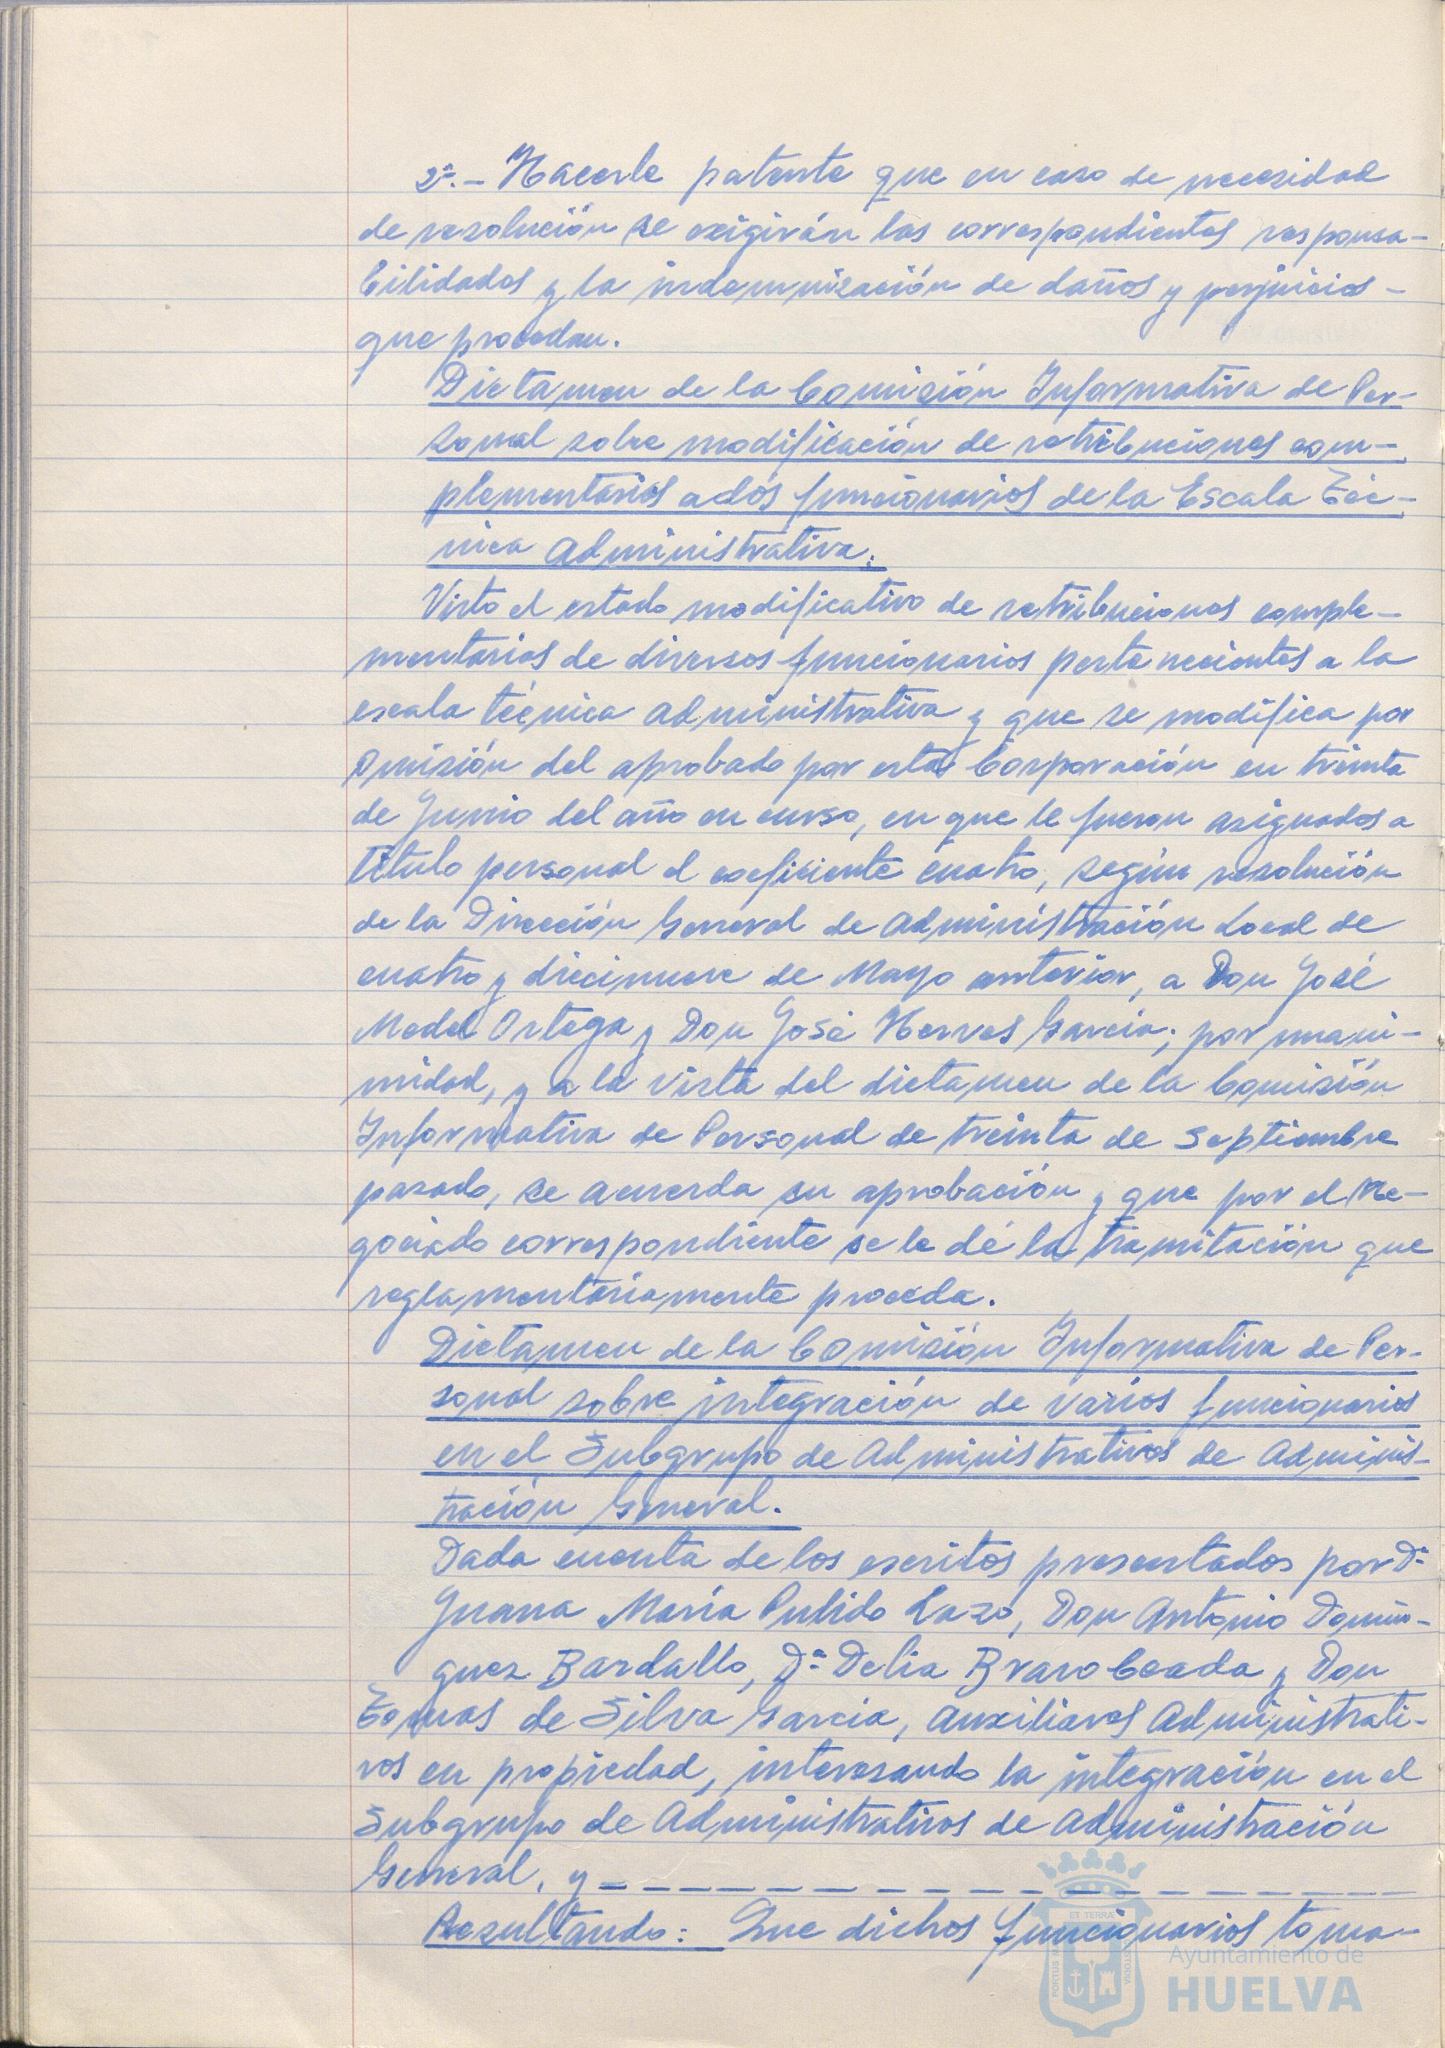 2º.- Hacerle patente que en caso de necesidad
de resolución se exigirán las correspondientes responsa-
bilidades y la indemnización de daños y perjuicios -
que procedan.
Dictamen de la Comisión Informativa de Per-
sonal sobre modificación de retribuciones com-
plementarias a los funcionarios de la Escala Téc-
nica Administrativa.
Visto el estado modificativo de retribuciones comple-
mentarias de diversos funcionarios pertenecientes a la
escala técnica administrativa y que se modifica por
omisión del aprobado por esta Corporación en treinta
de Junio del año en curso, en que le fueron asignados a
título personal el coeficiente cuatro, según resolución
de la Dirección General de Administración Local de
cuatro y diecinueve de Mayo anterior, a Don José
Medel Ortega y Don José Herves García; por unani-
midad, y a la vista del dictamen de la Comisión
Informativa de Personal de treinta de Septiembre
pasado, se acuerda su aprobación y que por el Ne-
gociado correspondiente se le dé la tramitación que
reglamentariamente proceda.
Dictamen de la Comisión Informativa de Per-
sonal sobre integración de varios funcionarios
en el Subgrupo de Administrativos de Adminis-
tración General.
Dada cuenta de los escritos presentados por Dª
Juana María Pulido Lazo, Don Antonio Domín-
guez Bardallo, Dª Delia Bravo Coada y Don
Tomas de Silva García, Auxiliares Administrati-
vos en propiedad, interesando la integración en el
Subgrupo de Administrativos de Administración
General, y - - - - - - - - - - - - - - - -
Resultando: Que dichos funcionarios toma-
ET TERRA
Ayuntamiento de
HUELVA